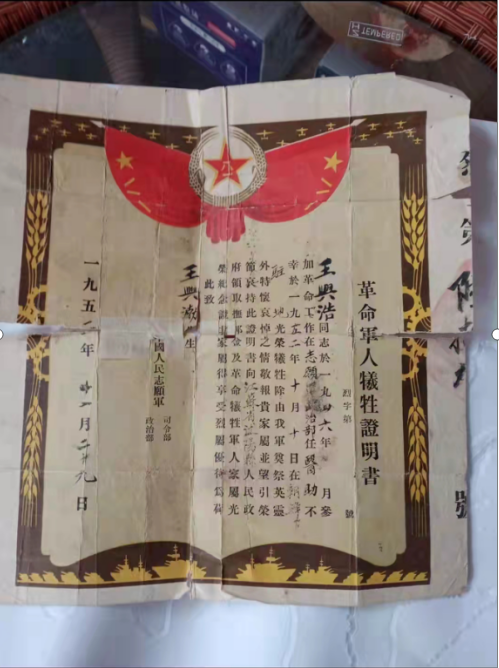 革命軍人犧牲證明書
烈字第 號
王興浩同志於一九四六年 月參
加革命工作在志願軍 治 部任醫助不
幸於一九五二年十月十日在朝鮮
地光榮犧牲除由我軍奠祭英靈
外特懷哀悼之情敬報貴家屬並望引榮
節哀持此證明書向 人民政
府領取撫卹金及革命犧牲軍人家屬光
榮紀念證 家屬得享受烈屬優待為荷
此致
王興 先生
國人民志願軍 司令部
政治部
一九五二年 月二十九日
號
TEMPERED